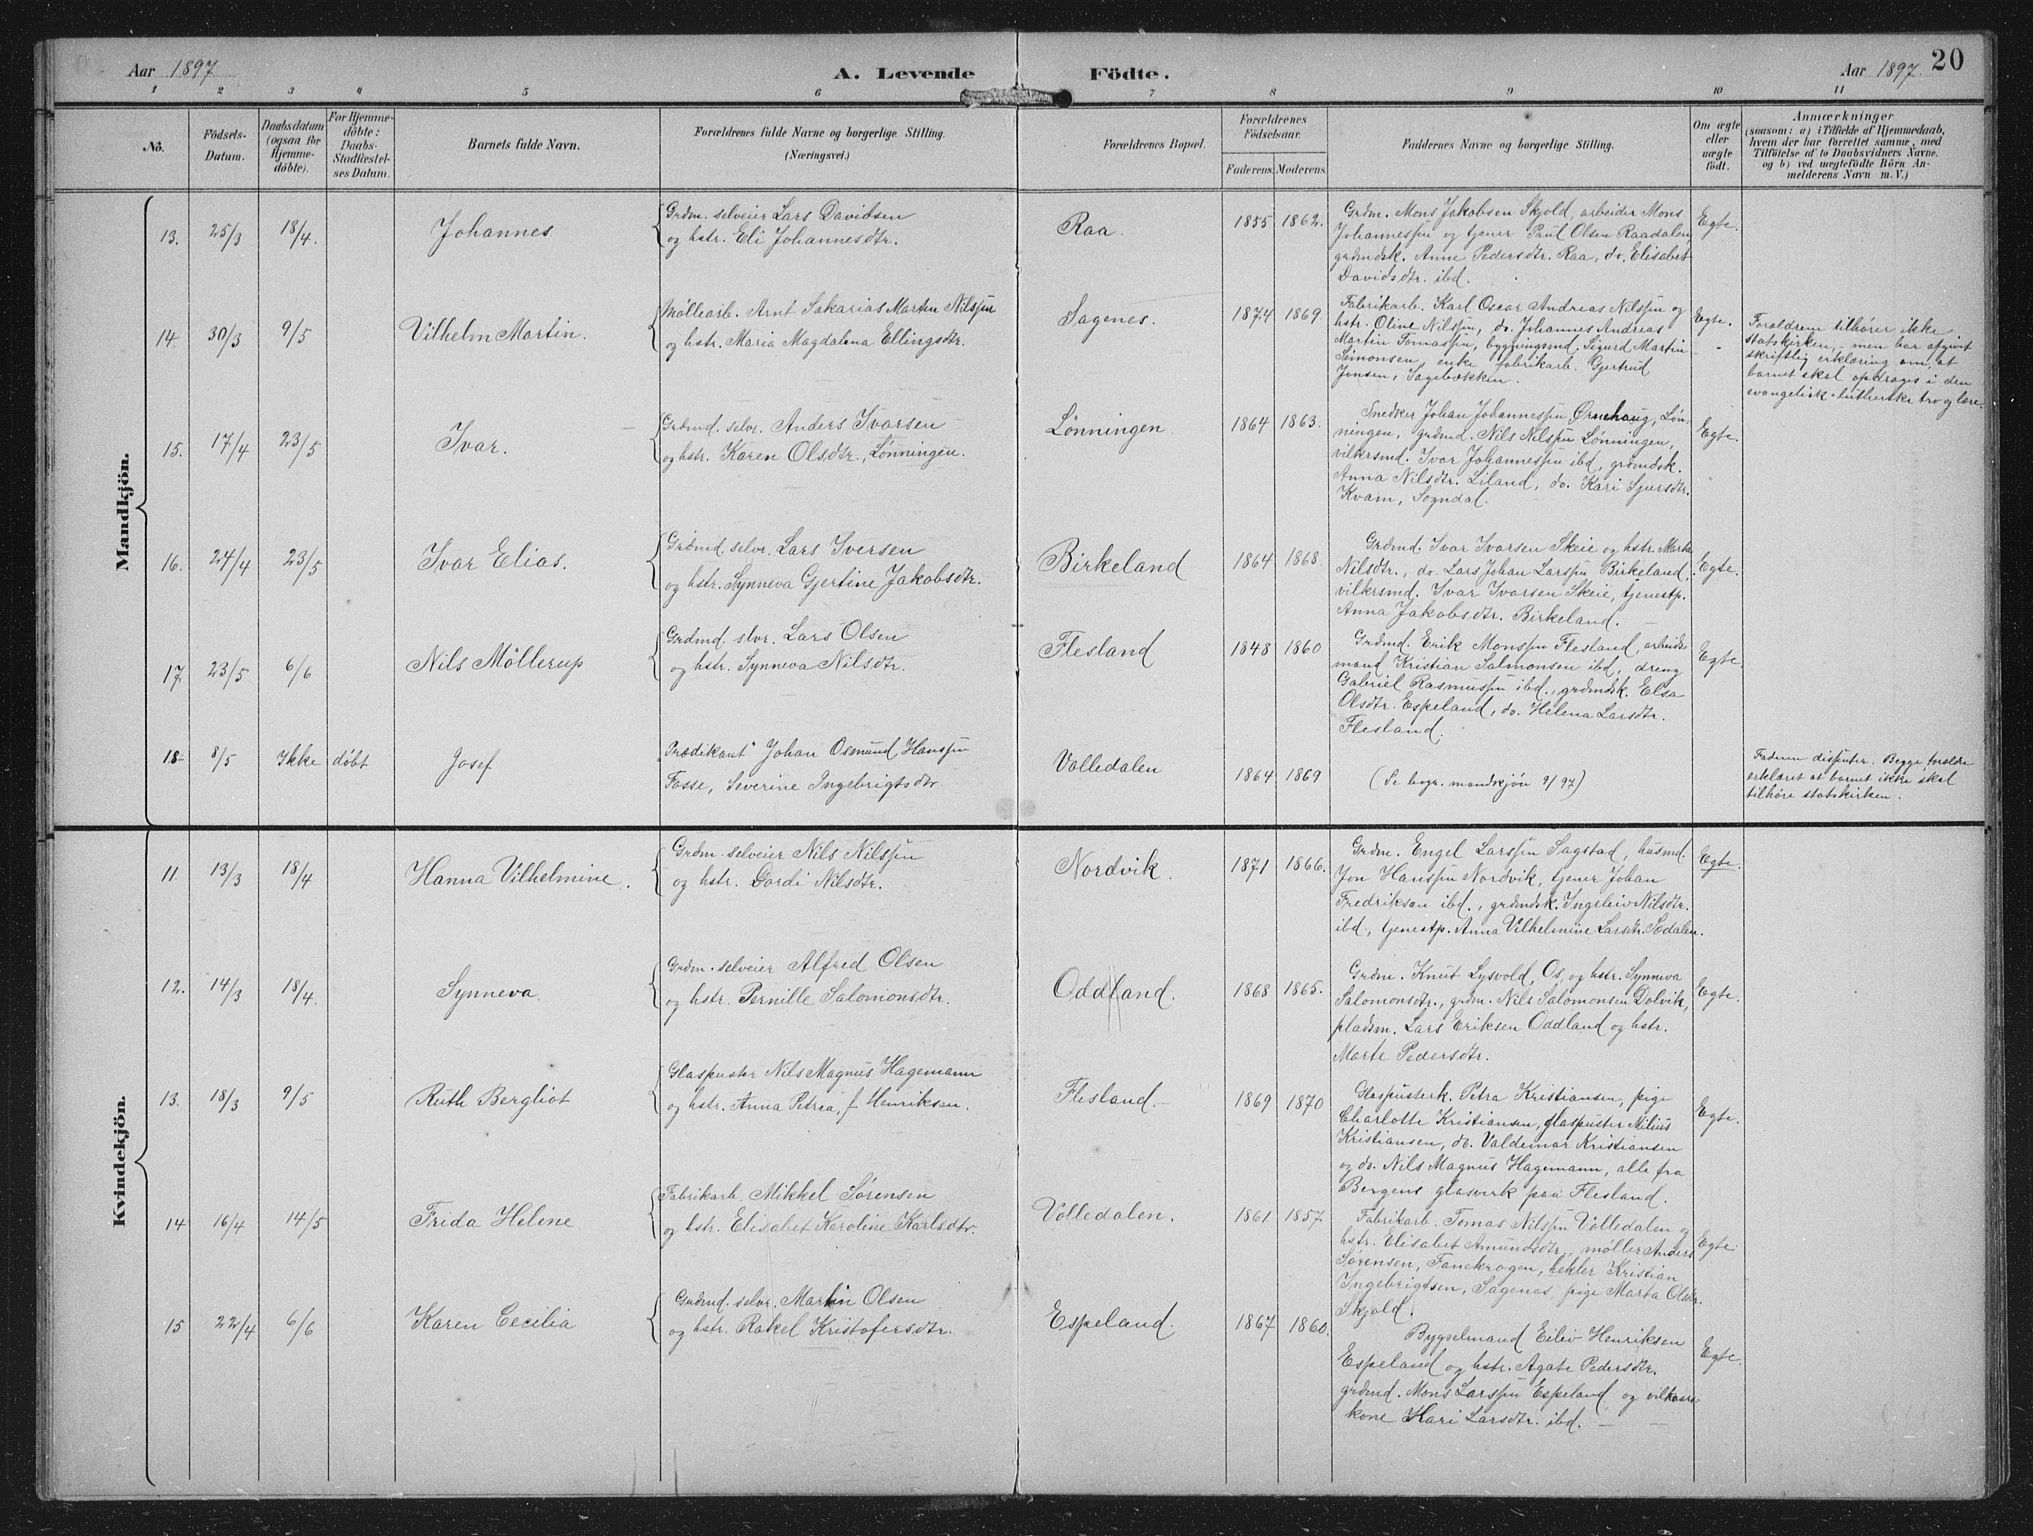 Aar 1897 A. Levende Födte. Aar 1897 20
1 2 3 4 5 6 7 8 9 10 11
No.
Födsels-
Datum.
Daabsdatum
(ogsaa for
Hjemme-
döbte).
For Hjemme-
döbte:
Daabs-
Stadfæstel-
ses Datum.
Barnets fulde Navn.
Forældrenes fulde Navne og borgerlige Stilling.
(Næringsvei.)
Forældrenes Bopæl.
Forældrenes
Födselsaar.
Faderens. Moderens.
Faddernes Navne og borgerlige Stilling.
Om ægte
eller
uægte
födt.
Anmærkninger
(saasom: a) i Tilfælde af Hjemmedaab,
hvem der har forrettet samme, med
Tilföielse af to Daabsvidners Navne.
og b) ved uægtefödte Börn An-
melderens Navn m. V.)
Mandkjön.
13. 25/3 18/4. Johannes
Grdm. selveier Lars Davidsen
og hstr. Eli Johannesdtr.
Raa. 1855 1862.
Grdm. Mons Jakobsen Skjold, arbeider Mons
Johannessen og tjener Paul Olsen Raadalen,
grdmdsk. Anne Pedersdtr. Raa, do. Elisabet
Davidsdtr. ibd.
Egte.
14. 30/3 9/5 Vilhelm Martin.
Møllearb. Arnt Sakarias Martin Nilssen
og hstr. Maria Magdalena Ellingsdtr.
Sagenes. 1874 1869
Fabrikarb. Karl Oscar Andreas Nilssen og
hstr. Oline Nilssen, do. Johannes Andreas
Martin Tomassen, bygningsmd. Sigurd Martin
Simonsen, enke fabrikarb. Gjertrud
Jensen, Sagebækken.
Egte.
Forældrene tilhører ikke
statskirken, - men har afgivit
skriftlig erklæring om, at
barnet skal opdrages i den
evangelisk-lutherske tro og lære.
15. 17/4 23/5 Ivar.
Grdmd. selvr. Anders Ivarsen
og hstr. Karen Olsdtr., Lønningen.
Lønningen. 1864 1863.
Snedker Johan Johannessen Ørnehaug, Løn-
ningen, grdmd. Nils Nilssen Lønningen,
vilkrsmd. Ivar Johannessen ibd, grdmdsk.
Anna Nilsdtr. Liland, do. Kari Sjursdtr.
Kvam, Sogndal.
Egte.
16. 24/4 23/5 Ivar Elias.
Grdmd. selvr. Lars Iversen
og hstr. Synneva Gjertine Jakobsdtr.
Birkeland 1864 1868.
Grdmd. Ivar Ivarsen Skeie og hstr. Marta
Nilsdtr., do. Lars Johan Larssen Birkeland,
vilkrsmd. Ivar Ivarsen Skeie, tjenestp.
Anna Jakobsdtr. Birkeland.
Egte.
17. 23/5 6/6 Nils Möllerup
Grdmd. slvr. Lars Olsen
og hstr. Synneva Nilsdtr.
Flesland 1848 1860
Grdmd. Erik Monssen Flesland, arbeids-
mand Kristian Salmonsen ibd, dreng
Gabriel Rasmussen ibd., grdmdsk. Elsa
Olsdtr. Espeland, do. Helena Larsdtr.
Flesland.
Egte.
18. 8/5 Ikke døbt Josef
"Prædikant" Johan Osmund Hanssen
Fosse, Severine Ingebrigtsdtr.
Volledalen 1864 1869
(Se begr. mandkjøn 9/97)
Faderen dissenter. Begge foræld.
erklæret at barnet ikke skal
tilhøre statskirken.
Kvindekjön.
11. 13/3 18/4 Hanna Vilhelmine.
Grdm. selveier Nils Nilssen
og hstr. Gordi Nilsdtr.
Nordvik. 1871 1866.
Grdm. Engel Larssen Sagstad, husmd.
Jon Hanssen Nordvik, tjener Johan
Fredriksen ibd., grdmdsk. Ingeleiv Nilsdtr.
ibd., tjenestp. Anna Vilhelmine Larsdtr. Sødalen.
Egte.
12. 14/3 18/4. Synneva.
Grdm. selveier Alfred Olsen
og hstr. Pernille Salomonsdtr.
Oddland. 1868 1865.
Grdm. Knut Lysvold, Os, og hstr. Synneva
Salomonsdtr., grdm. Nils Salomonsen Dolvik,
pladsm. Lars Eriksen Oddland og hstr.
Marte Pedersdtr.
Egte.
13. 18/3 9/5 Ruth Bergliot
Glaspuster Nils Magnus Hagemann
og hstr. Anna Petrea, f. Henriksen.
Flesland. 1869 1870
Glaspusterk. Petra Kristiansen, pige
Charlotte Kristiansen, glaspuster Milius
Kristiansen, do. Valdemar Kristiansen
og do. Nils Magnus Hagemann, alle fra
Bergens glasværk paa Flesland.
Egte.
14 16/4 14/5 Frida Helene
Fabrikarb. Mikkel Sørensen
og hstr. Elisabet Karoline Karlsdtr.
Volledalen. 1861 1857.
Fabrikarb. Tomas Nilssen Volledalen og
hstr. Elisabet Amundsdtr., møller Anders
Sørensen, Fanekrogen, hekler Kristian
Ingebrigtsen, Sagenes, pige Marta Olsdtr.
Skjold.
Egte.
15 22/4 6/6 Karen Cecilia
Grdmd. selvr. Martin Olsen
og hstr. Rakel Kristofersdtr.
Espeland. 1867 1860.
Bygselmand Eiliv Henriksen
Espeland og hstr. Agate Pedersdtr.
grdmd. Mons Larssen Espeland og vilkaars-
kone Kari Larsdtr. ibd.
Egte.